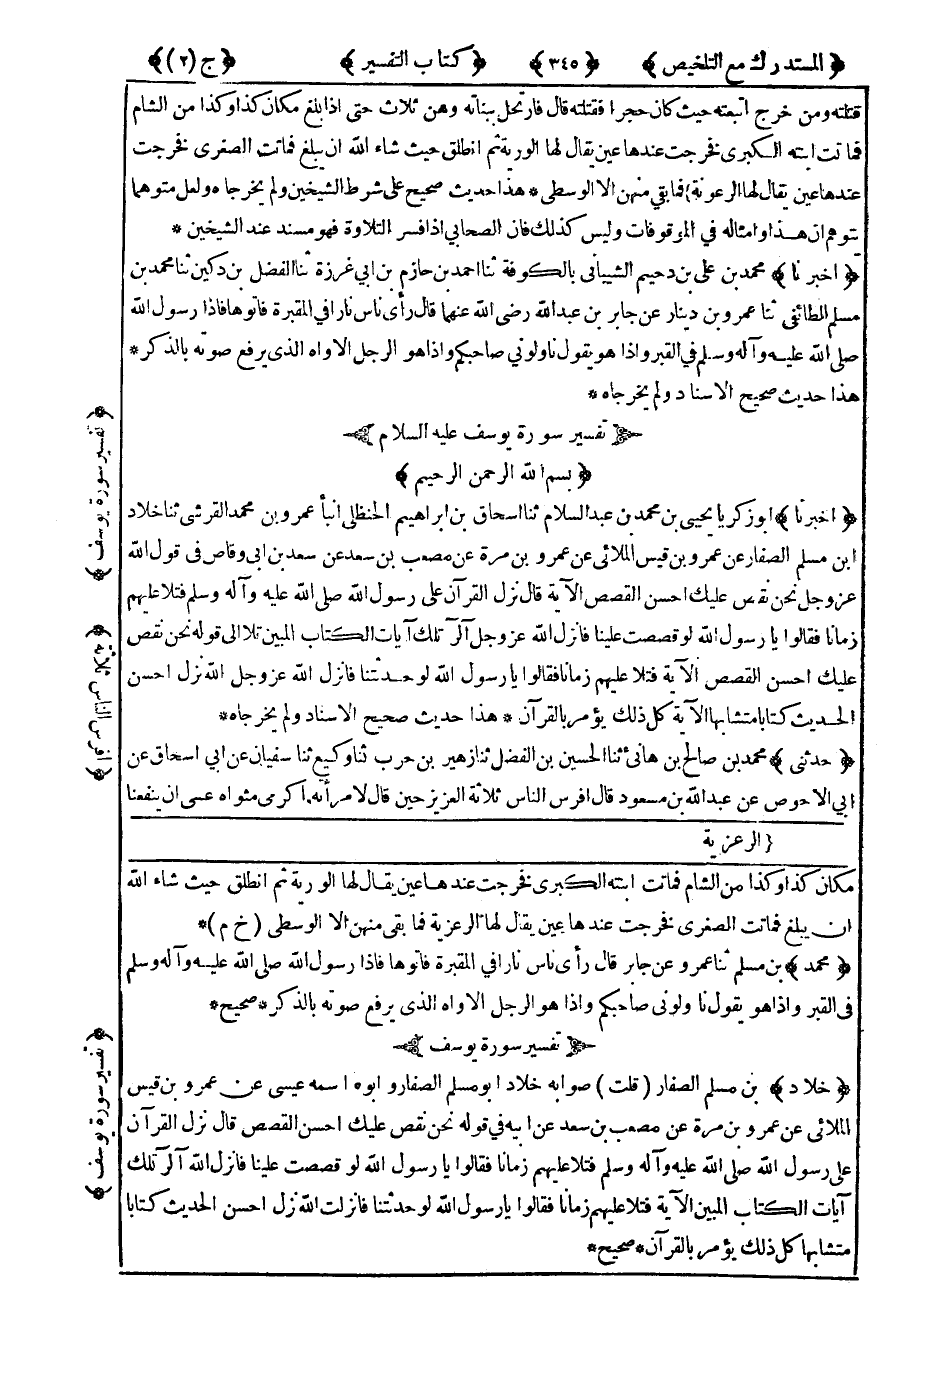 ﴿ المستدرك مع التلخيص ﴾ ﴿ ٣٤٥ ﴾ ﴿ كتاب التفسير ﴾ ﴿ ج (٢) ﴾
قتلته ومن خرج اتبعته حيث كان حجرا فقتلته قال فارتحل ببناته وهن ثلاث حتى اذا بلغ مكان كذا وكذا من الشام
فماتت ابنته الكبرى فخرجت عندها عين يقال لها الورية ثم انطلق حيث شاء الله ان يبلغ فماتت الصغرى فخرجت
عندها عين يقال لها الرعونة} فما بقي منهن الا الوسطى * هذا حديث صحيح على شرط الشيخين ولم يخرجاه ولعل متوهما
يتوهم ان هذا وامثاله في الموقوفات وليس كذلك فان الصحابي اذا فسر التلاوة فهو مسند عند الشيخين *
﴿ اخبرنا ﴾ محمد بن علي بن دحيم الشيباني بالكوفة ثنا احمد بن حازم بن ابي غرزة ثنا الفضل بن دكين ثنا محمد بن
مسلم الطائفي ثنا عمرو بن دينار عن جابر بن عبد الله رضى الله عنهما قال رأى ناس نارا في المقبرة فاتوها فاذا رسول الله
صلى الله عليه وآله وسلم في القبر واذا هو يقول ناولوني صاحبكم واذا هو الرجل الاواه الذى يرفع صوته بالذكر *
هذا حديث صحيح الاسناد ولم يخرجاه *
تفسير سورة يوسف عليه السلام
﴿ بسم الله الرحمن الرحيم ﴾
﴿ اخبرنا ﴾ ابو زكريا يحيى بن محمد بن عبد السلام ثنا اسحاق بن ابراهيم الحنظلى انبأ عمرو بن محمد القرشي ثنا خلاد
ابن مسلم الصفار عن عمرو بن قيس الملائى عن عمرو بن مرة عن مصعب بن سعد عن سعد بن ابى وقاص فى قول الله
عز وجل نحن نقص عليك احسن القصص الآية قال نزل القرآن على رسول الله صلى الله عليه وآله وسلم فتلا عليهم
زمانا فقالوا يا رسول الله لو قصصت علينا فانزل الله عز وجل آلر تلك آيات الكتاب المبين تلا الى قوله نحن نقص
عليك احسن القصص الآية فتلا عليهم زمانا فقالوا يا رسول الله لو حدثتنا فانزل الله عز وجل الله نزل احسن
الحديث كتابا متشابها الآية كل ذلك يؤمر بالقرآن * هذا حديث صحيح الاسناد ولم يخرجاه *
﴿ حدثنى ﴾ محمد بن صالح بن هانى ثنا الحسين بن الفضل ثنا زهير بن حرب ثنا وكيع ثنا سفيان عن ابي اسحاق عن
ابي الاحوص عن عبد الله بن مسعود قال افرس الناس ثلاثة العزيز حين قال لامرأته اكرمى مثواه عسى ان ينفعنا
{ الرعزية
مكان كذا وكذا من الشام فماتت ابنته الكبرى فخرجت عندها عين يقال لها الورية ثم انطلق حيث شاء الله
ان يبلغ فماتت الصغرى فخرجت عندها عين يقال لها الرعزية فما بقى منهن الا الوسطى (خ م) *
﴿ محمد ﴾ بن مسلم ثنا عمرو عن جابر قال رأى ناس نارا في المقبرة فاتوها فاذا رسول الله صلى الله عليه وآله وسلم
فى القبر واذا هو يقول ناولونى صاحبكم واذا هو الرجل الاواه الذى يرفع صوته بالذكر * صحيح *
تفسير سورة يوسف
﴿ خلاد ﴾ بن مسلم الصفار (قلت) صوابه خلاد ابو مسلم الصفار وابوه اسمه عيسى عن عمرو بن قيس
الملائى عن عمرو بن مرة عن مصعب بن سعد عن ابيه في قوله نحن نقص عليك احسن القصص قال نزل القرآن
على رسول الله صلى الله عليه وآله وسلم فتلا عليهم زمانا فقالوا يا رسول الله لو قصصت علينا فانزل الله آلر تلك
آيات الكتاب المبين الآية فتلا عليهم زمانا فقالوا يا رسول الله لو حدثتنا فانزلت الله نزل احسن الحديث كتابا
متشابها كل ذلك يؤمر بالقرآن * صحيح *
﴿ تفسير سورة يوسف ﴾
﴿ افرس الناس ثلاثة ﴾
﴿ تفسير سورة يوسف ﴾